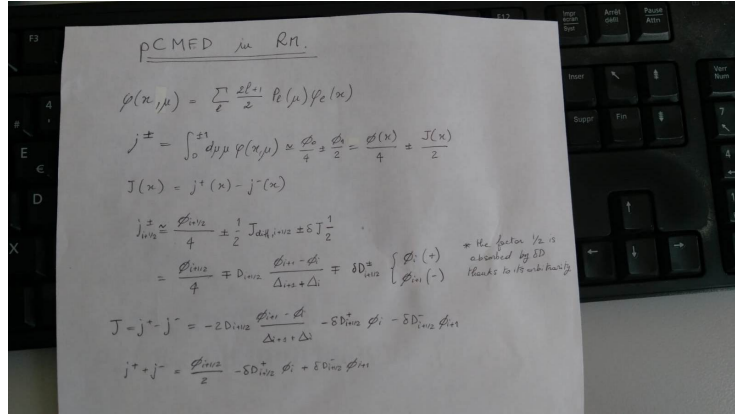 pCMED in RM.
φ(x,μ) = Σ_l (2l+1)/2 P_l(μ) φ_l(x)
j^± = ∫_0^{±1} dμ μ φ(x,μ) ≃ φ_0/4 ± φ_1/2 = ϕ(x)/4 ± J(x)/2
J(x) = j^+(x) - j^-(x)
j^±_{i+1/2} ≃ ϕ_{i+1/2}/4 ± 1/2 J_{diff,i+1/2} ± δJ 1/2
= ϕ_{i+1/2}/4 ∓ D_{i+1/2} (ϕ_{i+1} - ϕ_i)/(Δ_{i+1} + Δ_i) ∓ δD^±_{i+1/2} { ϕ_i (+) ϕ_{i+1} (-)
* the factor 1/2 is
absorbed by δD
thanks to its arbitrarity
J = j^+ - j^- = -2D_{i+1/2} (ϕ_{i+1} - ϕ_i)/(Δ_{i+1} + Δ_i) - δD^+_{i+1/2} ϕ_i - δD^-_{i+1/2} ϕ_{i+1}
j^+ + j^- = ϕ_{i+1/2}/2 - δD^+_{i+1/2} ϕ_i + δD^-_{i+1/2} ϕ_{i+1}
F3
F12
Impr
écran
Syst
Arrêt
défil
Pause
Attn
Inser
Suppr
Fin
Verr
Num
4
#
E
€
D
X
7
4
1